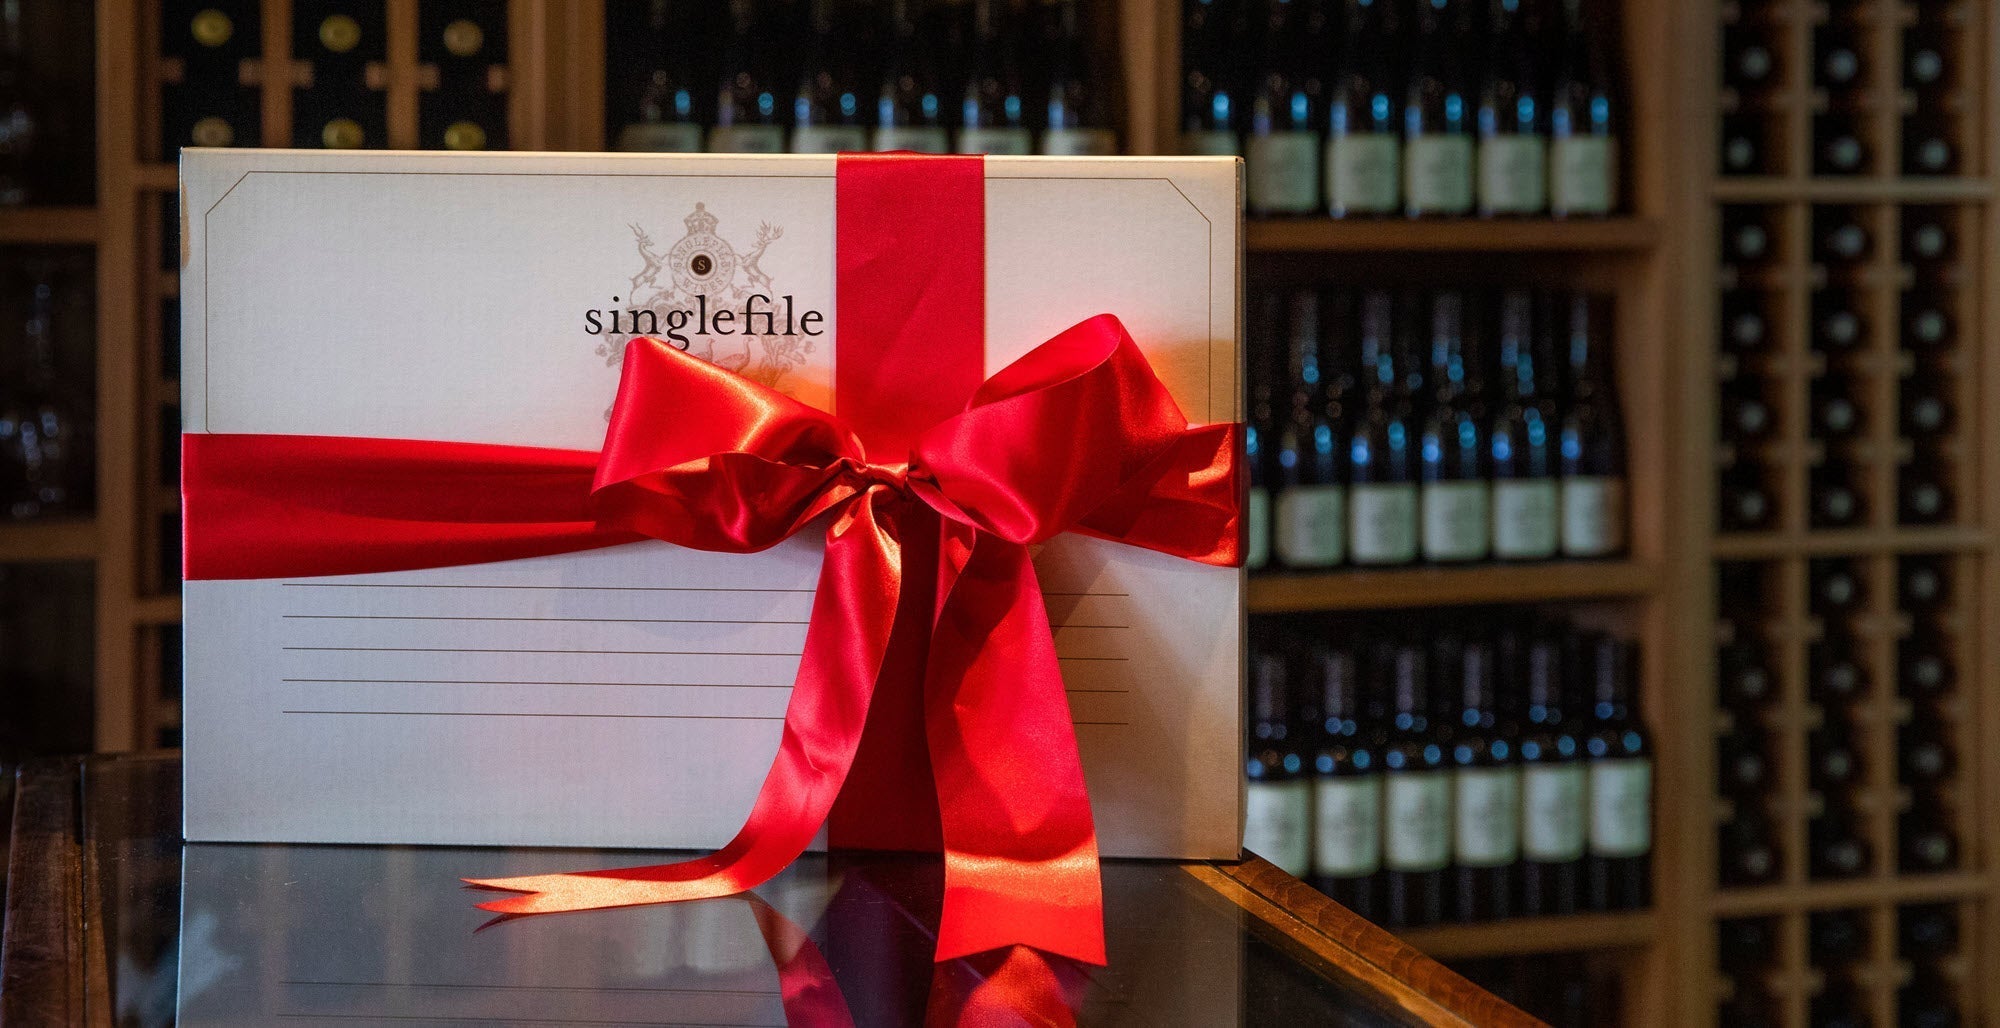 SINGLEFILE
S
WINES
singlefile